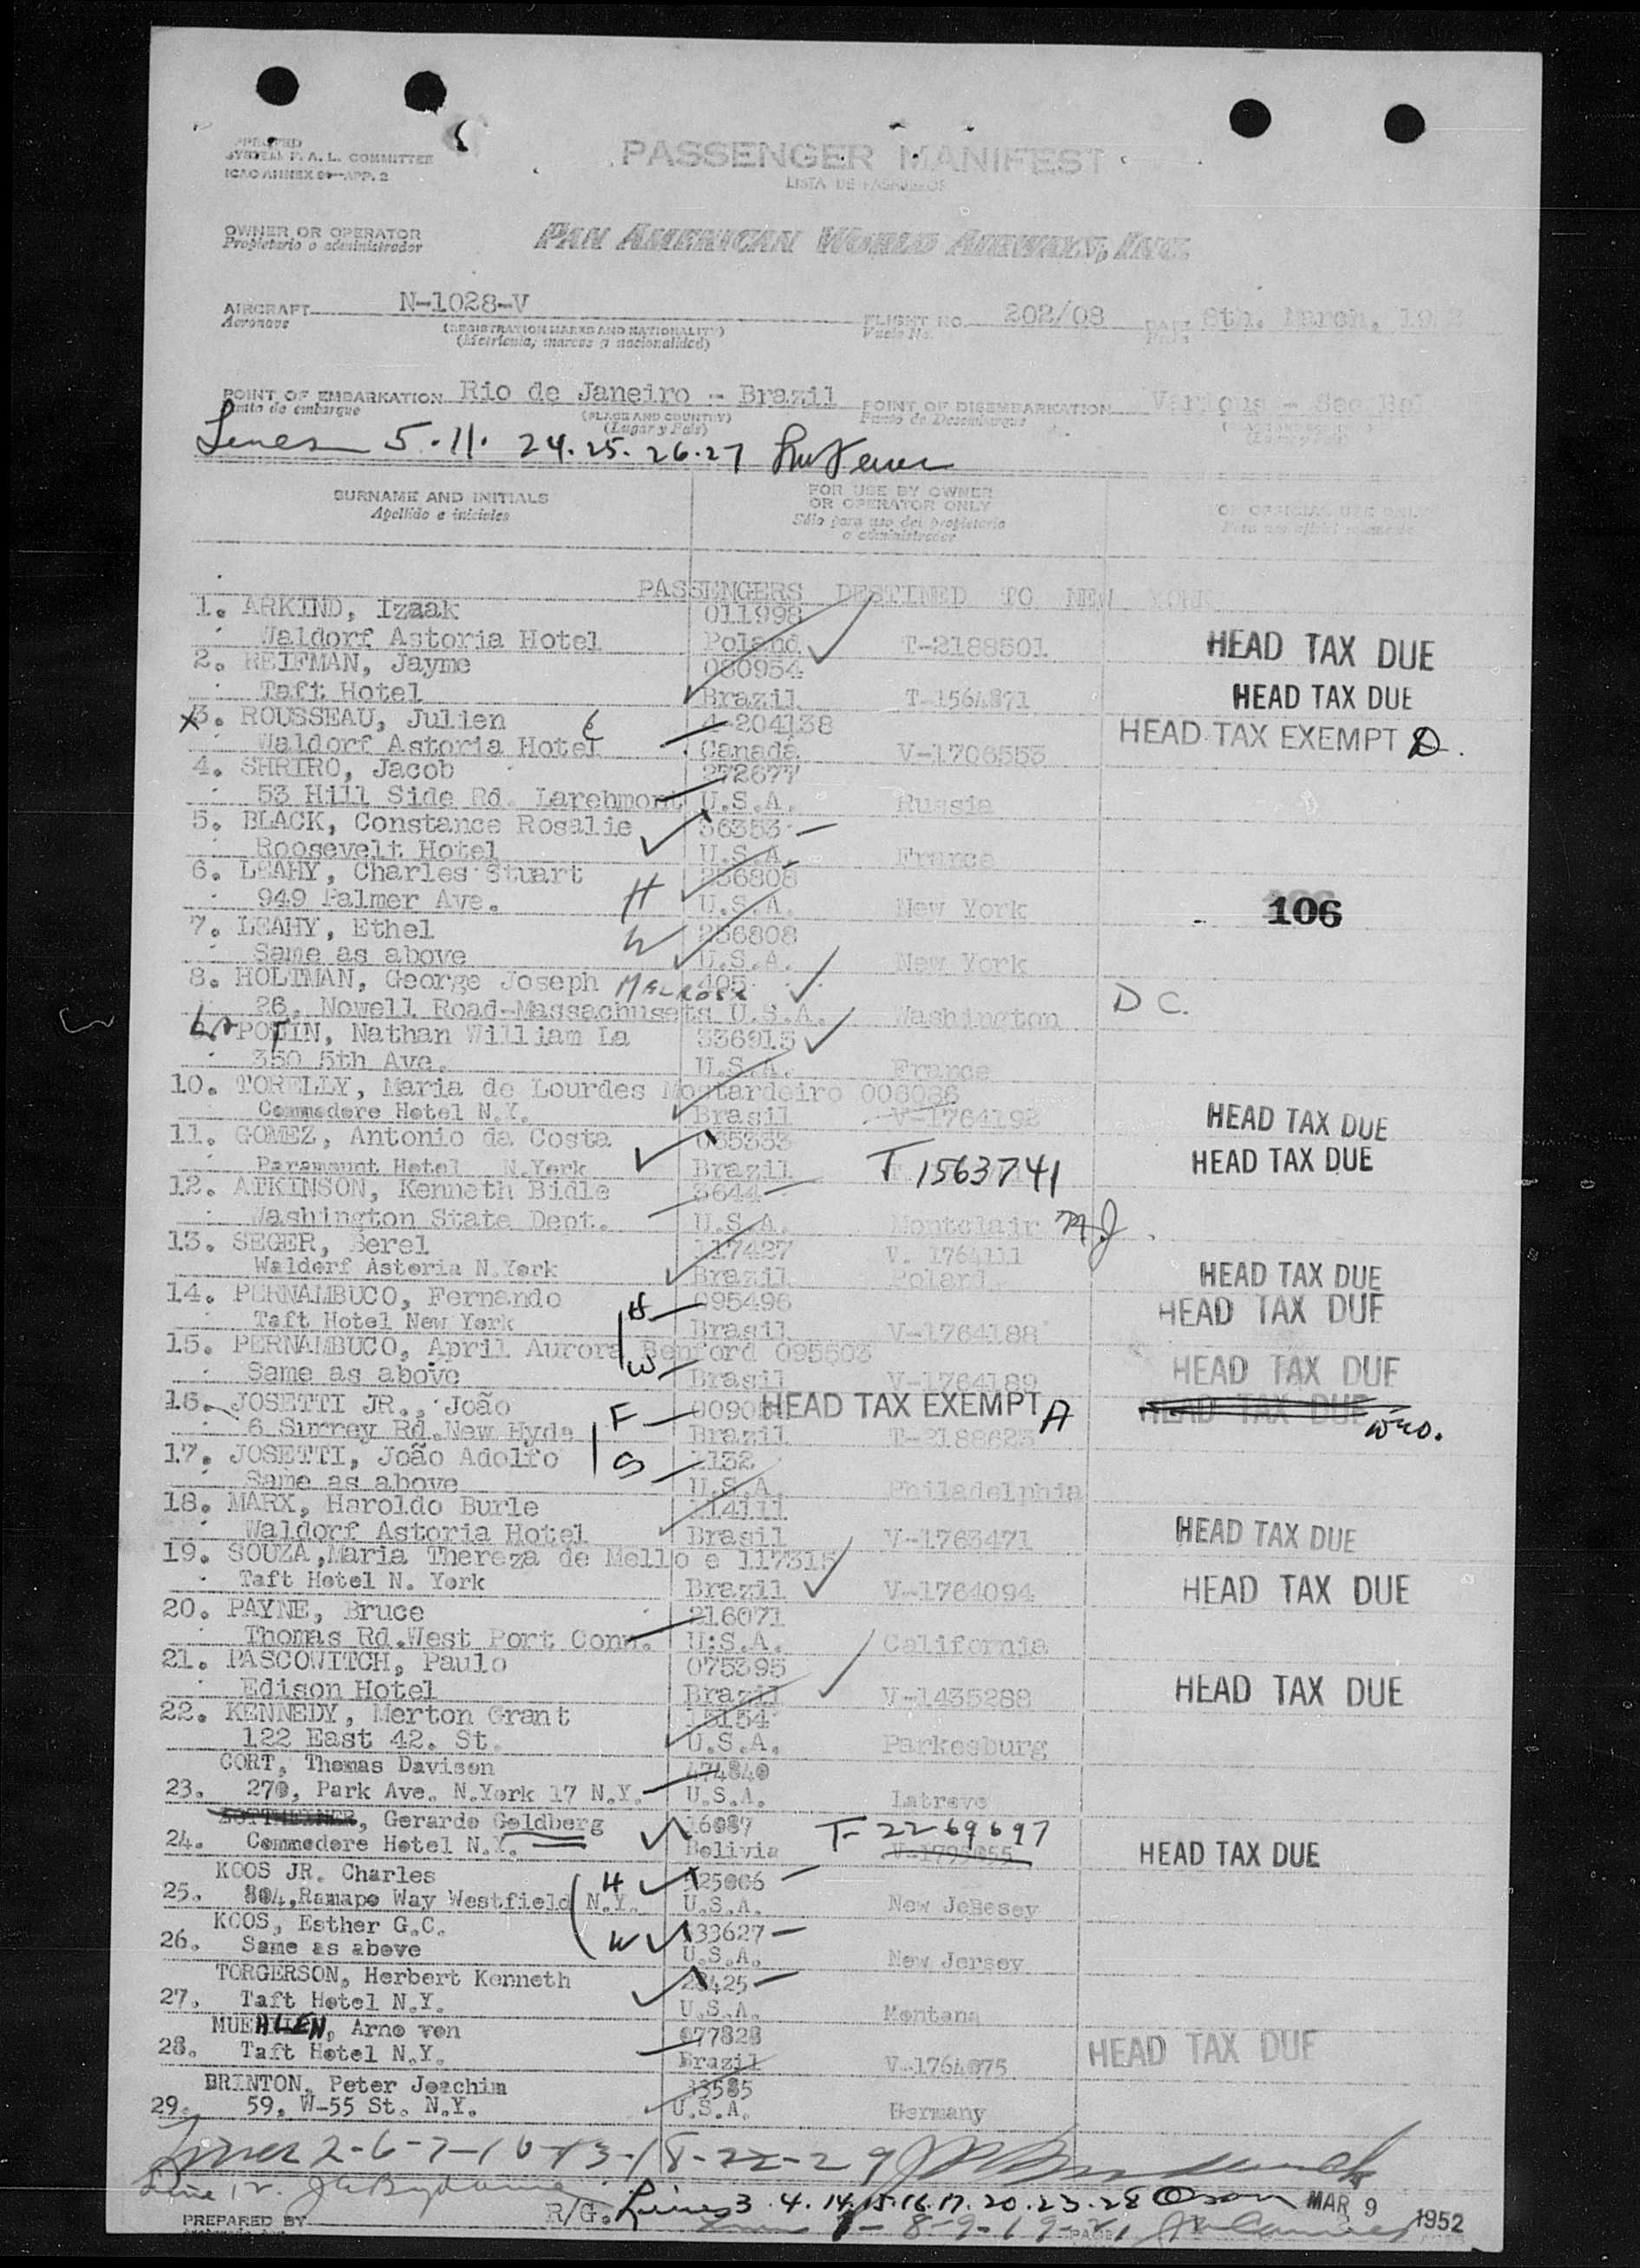 SYSTEM F. A. L. COMMITTEE
ICAO ANNEX 9—APP. 2
PASSENGER MANIFEST
LISTA DE PASAJEROS
OWNER OR OPERATOR
Propietario o administrador
PAN AMERICAN WORLD AIRWAYS, INC.
AIRCRAFT N-1028-V
Aeronave
(REGISTRATION MARKS AND NATIONALITY)
(Matricula, marcas y nacionalidad)
FLIGHT NO. 202/08
Vuelo No.
8th. March, 19
POINT OF EMBARKATION Rio de Janeiro - Brazil
Punto de embarque
(PLACE AND COUNTRY)
(Lugar y País)
POINT OF DISEMBARKATION Various - See Bel
Punto de Desembarque
Lines 5.11. 24.25.26.27
SURNAME AND INITIALS
Apellido e iniciales
FOR USE BY OWNER
OR OPERATOR ONLY
Sólo para uso del propietario
o administrador
FOR OFFICIAL USE ONLY
PASSENGERS DESTINED TO NEW YORK
1. ARKIND, Izaak 011998
Waldorf Astoria Hotel Poland T-2188501 HEAD TAX DUE
2. REIFMAN, Jayme 080954
Taft Hotel Brazil T-1564871 HEAD TAX DUE
X 3. ROUSSEAU, Julien 4-204138
Waldorf Astoria Hotel Canada V-1706553 HEAD TAX EXEMPT D.
4. SHRIRO, Jacob 272677
53 Hill Side Rd. Larehmont U.S.A. Russia
5. BLACK, Constance Rosalie 36353
Roosevelt Hotel U.S.A. France
6. LEAHY, Charles Stuart H 256808
949 Palmer Ave. U.S.A. New York 106
7. LEAHY, Ethel W 256808
Same as above U.S.A. New York
8. HOLTMAN, George Joseph MELROSE 405
26, Nowell Road-Massachusets U.S.A. Washington D C.
La POTIN, Nathan William La 336915
350 5th Ave. U.S.A. France
10. TORELLY, Maria de Lourdes Mostardeiro 006086
Commodore Hotel N.Y. Brasil V-1764192 HEAD TAX DUE
11. GOMEZ, Antonio da Costa 035333
Paramount Hotel N.York Brazil T 1563741 HEAD TAX DUE
12. ATKINSON, Kenneth Bidle 3644
Washington State Dept. U.S.A. Montclair N.J.
13. SEGER, Berel 117427 V. 1764111
Waldorf Astoria N.York Brazil Poland HEAD TAX DUE
14. PERNAMBUCO, Fernando H 095496 HEAD TAX DUE
Taft Hotel New York Brasil V-1764188
15. PERNAMBUCO, April Aurora Benford 095503
Same as above W Brasil V-1764189 HEAD TAX DUE
16. JOSETTI JR., João F 0090 HEAD TAX EXEMPT A HEAD TAX DUE
6 Surrey Rd.New Hyde Brazil T-2188623
17. JOSETTI, João Adolfo S 1132
Same as above U.S.A. Philadelphia
18. MARX, Haroldo Burle 114111
Waldorf Astoria Hotel Brasil V-1763471 HEAD TAX DUE
19. SOUZA,Maria Thereza de Mello e 117315
Taft Hotel N. York Brazil V-1764094 HEAD TAX DUE
20. PAYNE, Bruce 216071
Thomas Rd.West Port Conn. U.S.A. California
21. PASCOWITCH, Paulo 075395
Edison Hotel Brazil V-1435288 HEAD TAX DUE
22. KENNEDY, Merton Grant 15154
122 East 42. St. U.S.A. Parkesburg
CORT, Thomas Davison 474840
23. 270, Park Ave. N.York 17 N.Y. U.S.A. Latrove
Gerardo Goldberg 16087 T-2269697
24. Commodore Hotel N.Y. Bolivia V-1795055 HEAD TAX DUE
KOOS JR. Charles H 525006
25. 804,Ramapo Way Westfield N.Y. U.S.A. New JeResey
KOOS, Esther G.C. W 133627
26. Same as above U.S.A. New Jersey
TORGERSON, Herbert Kenneth 28425
27. Taft Hotel N.Y. U.S.A. Montana
MUEHLEN, Arno von 077828
28. Taft Hotel N.Y. Brazil V-1764075 HEAD TAX DUE
BRINTON, Peter Joachim 33585
29. 59, W-55 St. N.Y. U.S.A. Hermany
Lines 2-6-7-10-13-18-22-29
Line 12.
R/G. Lines 3.4.14.15.16.17.20.23.28 Olson MAR 9 1952
PREPARED BY
Lines 1-8-9-19-21